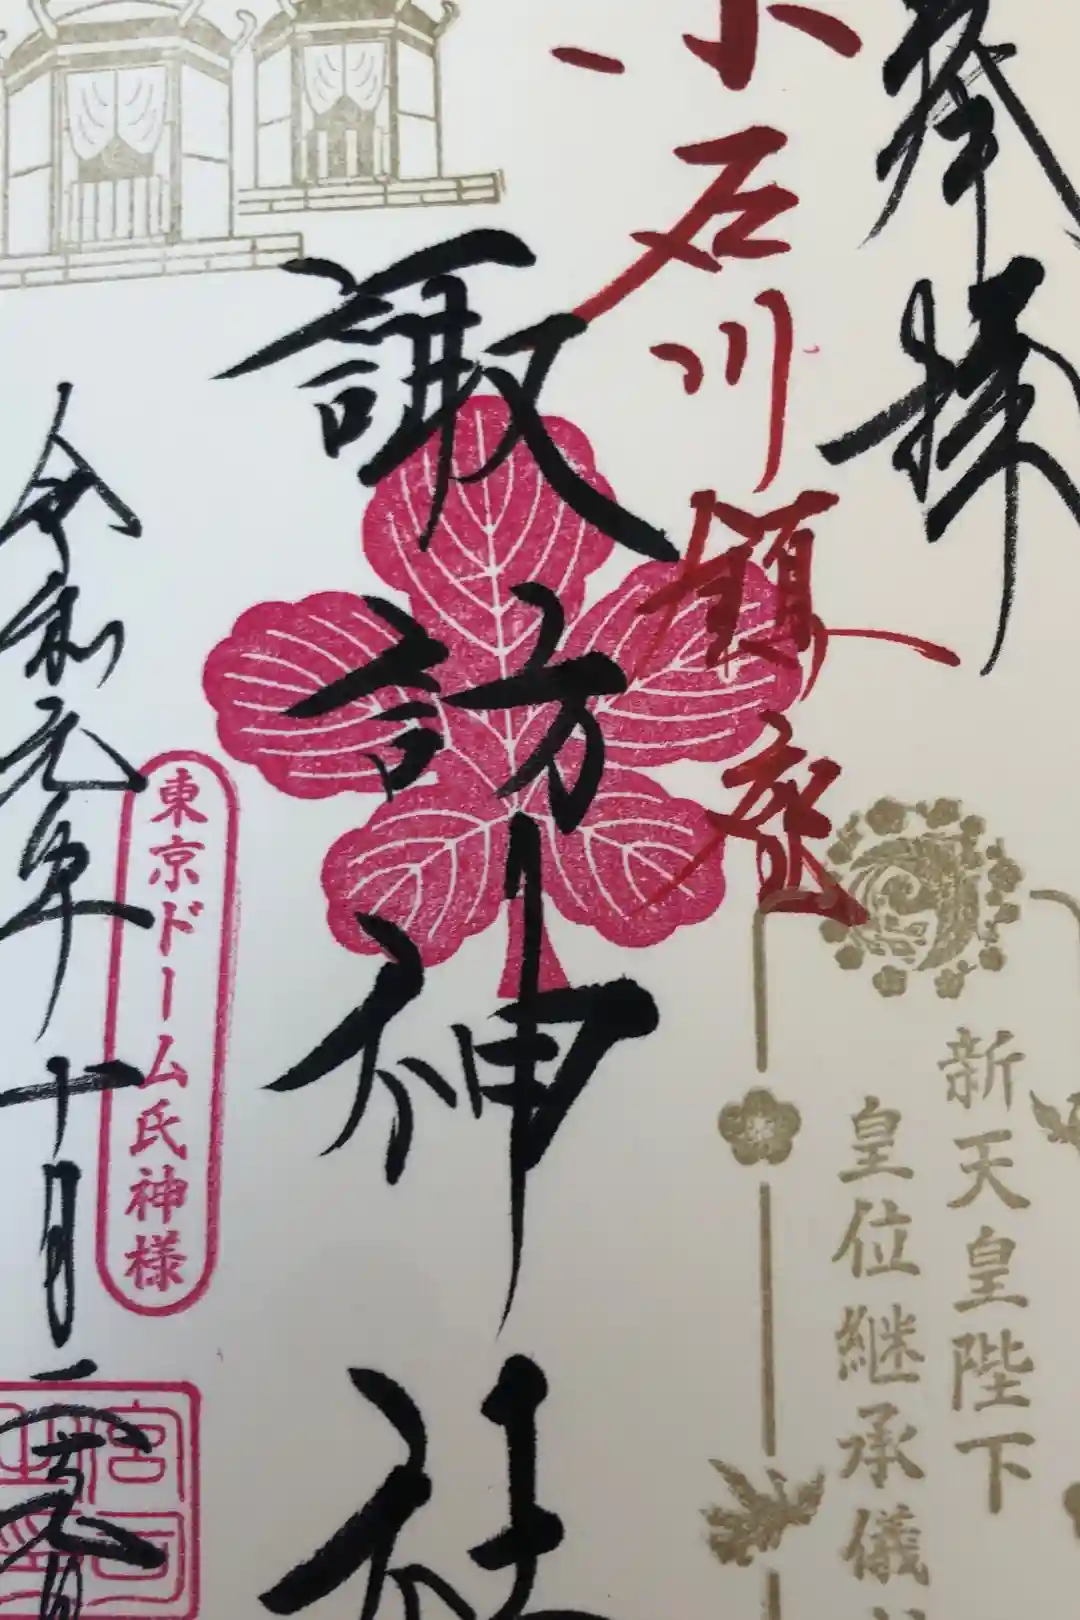 奉拝
小石川鎮座
諏訪神社
新天皇陛下
皇位継承儀
令和元年十月
東京ドーム氏神様